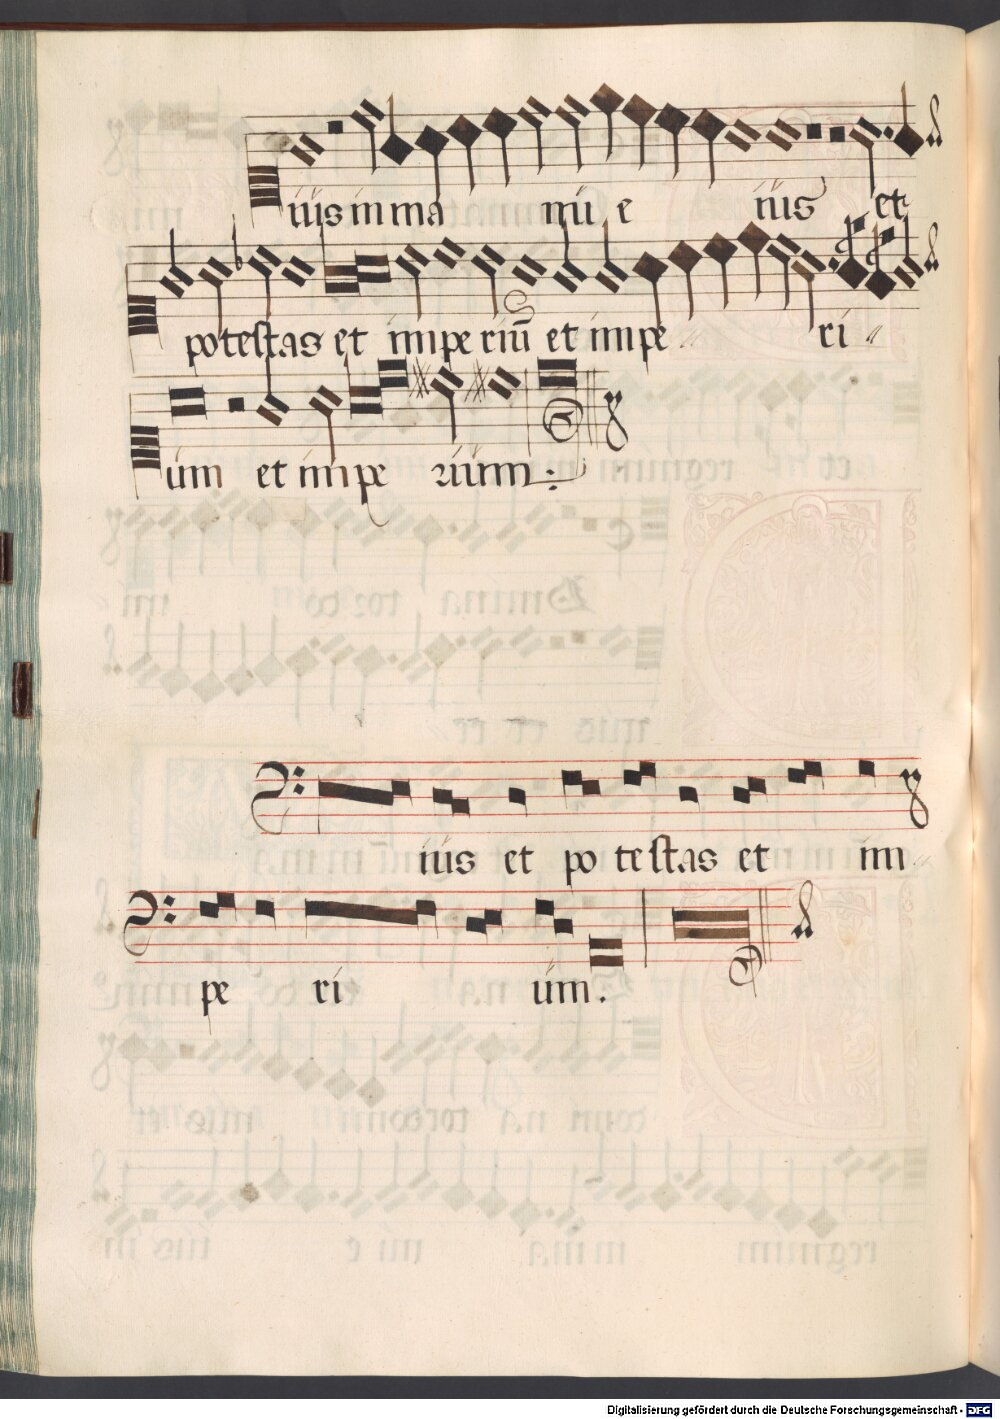 iüs in ma nu e iüs et
potestas et imperiū et impe ri
üm et impe riüm
iüs et potestas et im
pe ri üm.
Digitalisierung gefördert durch die Deutsche Forschungsgemeinschaft - DFG